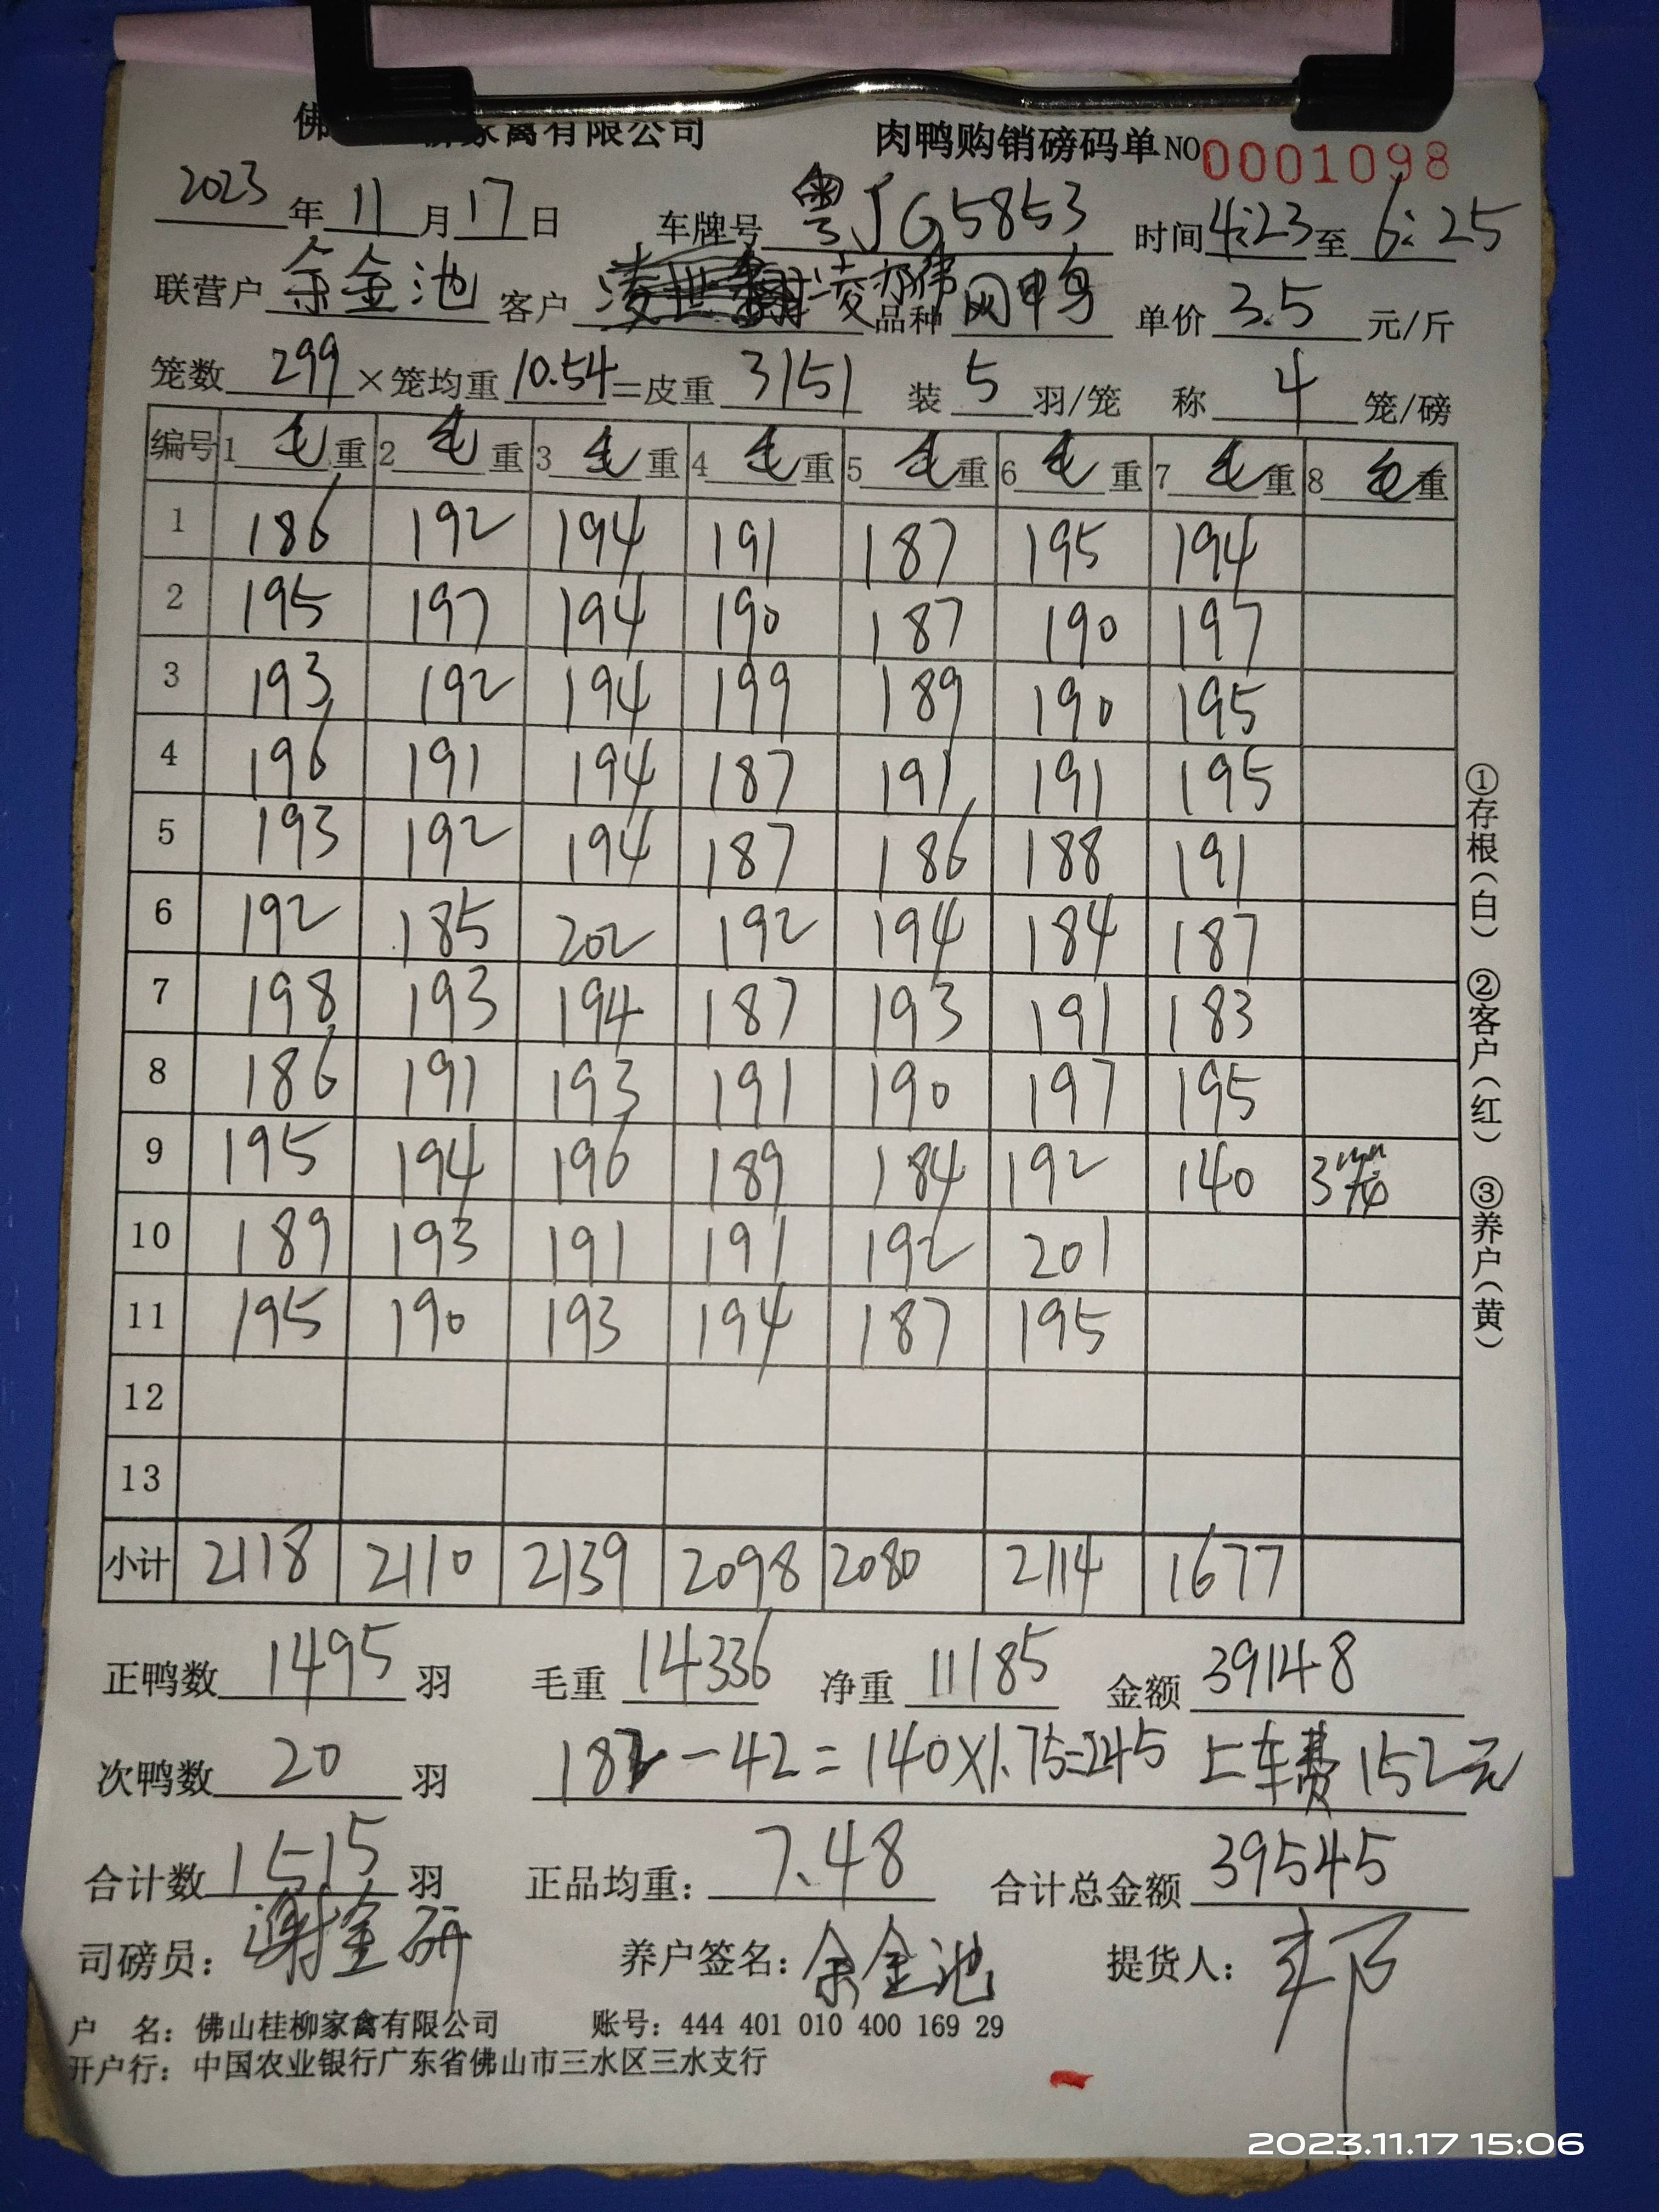 佛 家禽有限公司 肉鸭购销磅码单 NO 0001098
2023年11月17日 车牌号 粤JG5853 时间 4:23 至 6:25
联营户 余金池 客户 凌 品种 网鸭 单价 3.5 元/斤
笼数 299 ×笼均重 10.54 =皮重 3151 装 5 羽/笼 称 4 笼/磅
编号 1 毛重 2 毛重 3 毛重 4 毛重 5 毛重 6 毛重 7 毛重 8 毛重
1 186 192 194 191 187 195 194
2 195 197 194 190 187 190 197
3 193 192 194 199 189 190 195
4 196 191 194 187 191 191 195
5 193 192 194 187 186 188 191
6 192 185 202 192 194 184 187
7 198 193 194 187 193 191 183
8 186 191 193 191 190 197 195
9 195 194 196 189 184 192 140 3笼
10 189 193 191 191 192 201
11 195 190 193 194 187 195
12
13
小计 2118 2110 2139 2098 2080 2114 1677
正鸭数 1495 羽 毛重 14336 净重 11185 金额 39148
次鸭数 20 羽 182-42=140×1.75=245 上车费152元
合计数 1515 羽 正品均重: 7.48 合计总金额 39545
司磅员: 谢金研 养户签名: 余金池 提货人:
户 名: 佛山桂柳家禽有限公司 账号: 444 401 010 400 169 29
开户行: 中国农业银行广东省佛山市三水区三水支行
①存根(白) ②客户(红) ③养户(黄)
2023.11.17 15:06